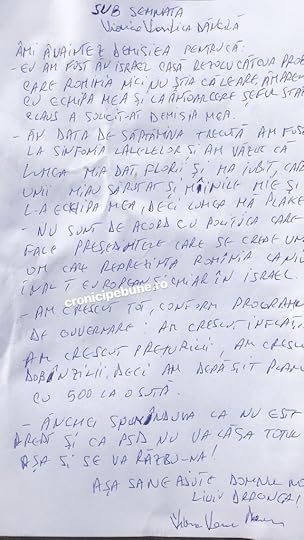 SUB SEMNATA
Viorica Vasilica DĂNCILĂ
ÎMI ÂNAINTEZ DEMISIEA PENTRUCĂ:
- EU AM FOST ÂN ISRAEL CASĂ REZOLV CÂTEVA PROB
CARE ROMÎNIA NICI NU ȘTIA CĂ LEARE,
CU ECHIPA MEA ȘI LA ÂNTOARCERE ȘEFUL STAT
A SOLICITAT DEMISIA MEA.
- ÂN DATA DE SĂPTĂMÎNA TRECUTĂ AM FOS
LA SINFONIA LALELELOR ȘI AM VĂZUT CĂ
LUMEA MIA DAT FLORII ȘI MA IUBIT,
UNII MIAU SĂRUTAT ȘI MÎINILE MIE ȘI
L-A ECHIPA MEA, DECI LUMEA MĂ PLACE
- NU SUNT DE ACORD CU POLITICA CARE
FALE PRESEDINTELE CARE SE CREDE UN
OM CARE REPREZINTĂ ROMÎNIA LA NIV
ÎNALT EUROPEAN ȘI CHIAR ÎN ISRAEL.
cronicipebune.ro
- AM CRESCUT TOT, CONFORM PROGRAMU
DE GUVERNARE: AM CRESCUT INFLAȚI
AM CRESCUT PREȚURILII, AM CRESCU
DOBÎNZILII, DECI AM DEPĂȘIT PLANU
CU 500 LA SUTĂ.
- ÂNCHEI SPUNÂNDUVĂ CĂ NU EST
DREPT ȘI CĂ PSD NU VA LĂSA TOTUL
AȘA ȘI SE VA RĂZBU-NA!
AȘA SĂ NE AJUTE DOMNUL NO
LIVIU DRAGNEA!